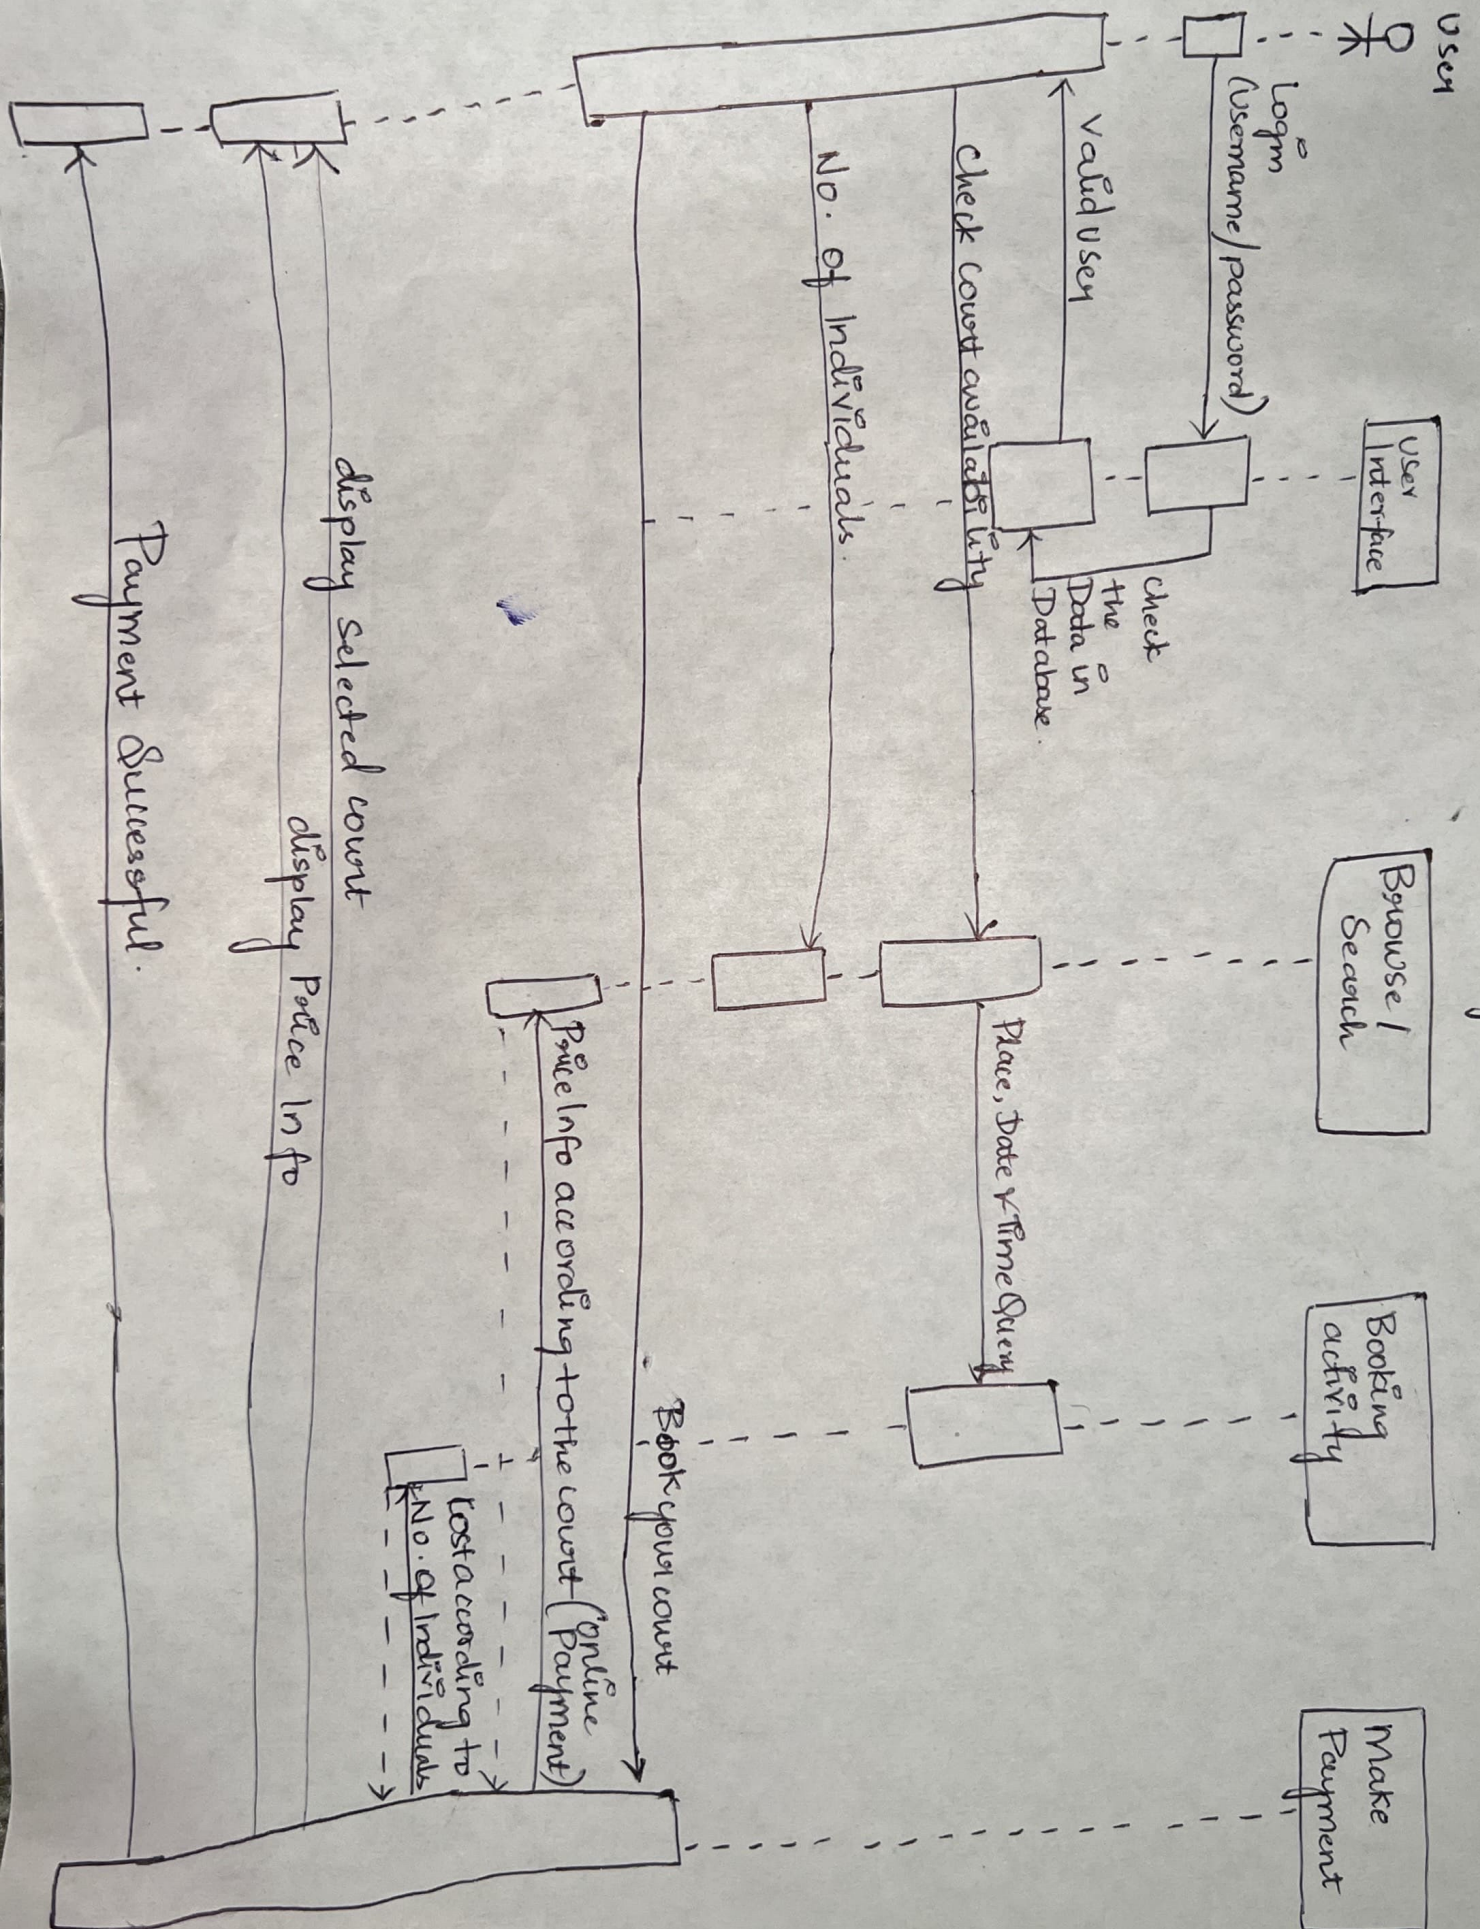 User
User
Interface
Browse /
Search
Booking
activity
Make
Payment
Login
(username/password)
check
the
Data in
Database.
Valid user
Check court availability
Place, Date & Time Query
No. of Individuals.
Book your court
Price Info according to the court (Online
Payment)
Cost according to
No. of Individuals
display selected court
display Price Info
Payment Successful.